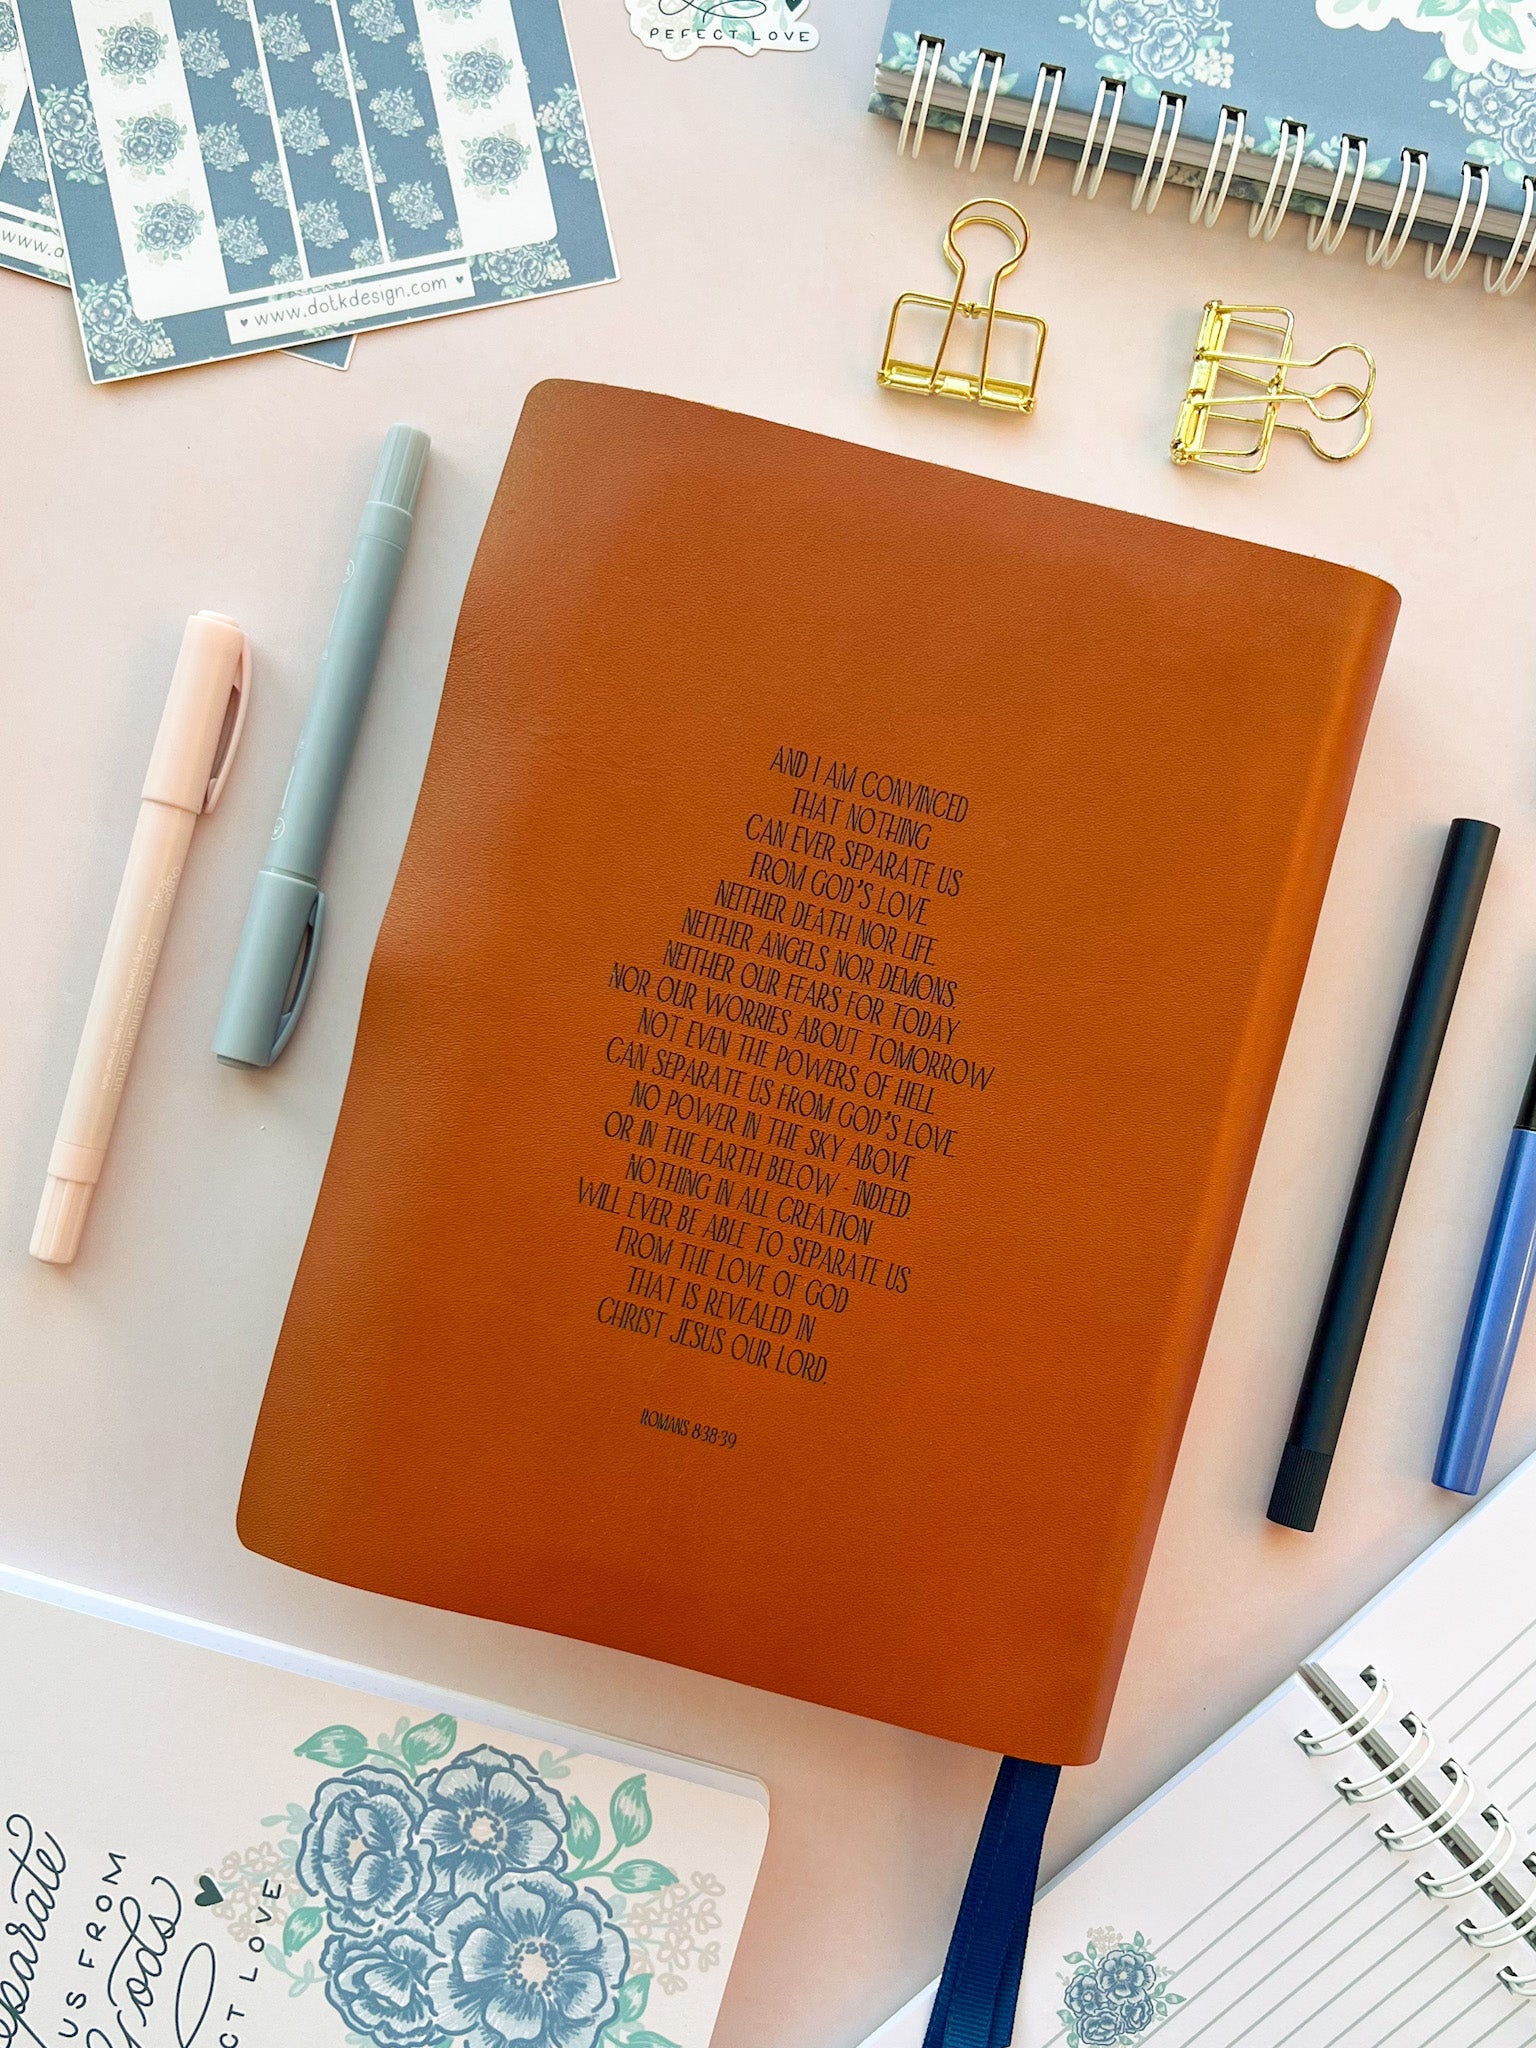 PEFECT LOVE
www.
♥ www.dotkdesign.com ♥
AND I AM CONVINCED
THAT NOTHING
CAN EVER SEPARATE US
FROM GOD'S LOVE
NEITHER DEATH NOR LIFE,
NEITHER ANGELS NOR DEMONS,
NEITHER OUR FEARS FOR TODAY
NOR OUR WORRIES ABOUT TOMORROW
NOT EVEN THE POWERS OF HELL
CAN SEPARATE US FROM GOD'S LOVE
NO POWER IN THE SKY ABOVE
OR IN THE EARTH BELOW - INDEED,
NOTHING IN ALL CREATION
WILL EVER BE ABLE TO SEPARATE US
FROM THE LOVE OF GOD
THAT IS REVEALED IN
CHRIST JESUS OUR LORD.
ROMANS 8:38-39
eparate
US FROM
Gods
CT LOVE